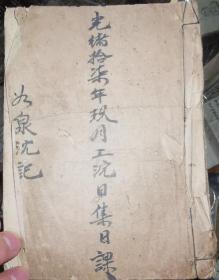 光緒拾柒年玖月工浣日集日課
如泉沈記